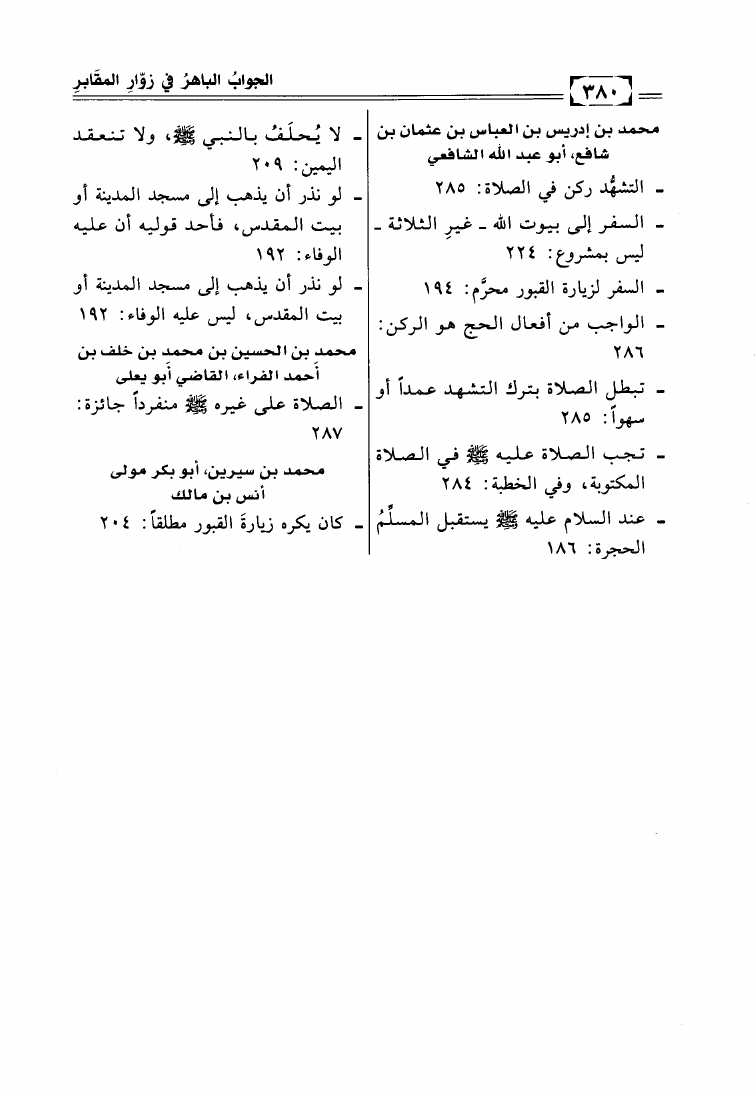 ٣٨٠
الجوابُ الباهرُ في زوّارِ المقَابرِ
محمد بن إدريس بن العباس بن عثمان بن
شافع، أبو عبد الله الشافعي
ـ التشهُّد ركن في الصلاة: ٢٨٥
ـ السفر إلى بيوت الله ـ غيرِ الثلاثة ـ
ليس بمشروع: ٢٢٤
ـ السفر لزيارة القبور محرَّم: ١٩٤
ـ الواجب من أفعال الحج هو الركن:
٢٨٦
ـ تبطل الصلاة بترك التشهد عمداً أو
سهواً: ٢٨٥
ـ تجب الصلاة عليه ﷺ في الصلاة
المكتوبة، وفي الخطبة: ٢٨٤
ـ عند السلام عليه ﷺ يستقبل المسلِّمُ
الحجرة: ١٨٦
ـ لا يُحلَفُ بالنبي ﷺ، ولا تنعقد
اليمين: ٢٠٩
ـ لو نذر أن يذهب إلى مسجد المدينة أو
بيت المقدس، فأحد قوليه أن عليه
الوفاء: ١٩٢
ـ لو نذر أن يذهب إلى مسجد المدينة أو
بيت المقدس، ليس عليه الوفاء: ١٩٢
محمد بن الحسين بن محمد بن خلف بن
أحمد الفراء، القاضي أبو يعلى
ـ الصلاة على غيره ﷺ منفرداً جائزة:
٢٨٧
محمد بن سيرين، أبو بكر مولى
أنس بن مالك
ـ كان يكره زيارةَ القبور مطلقاً: ٢٠٤